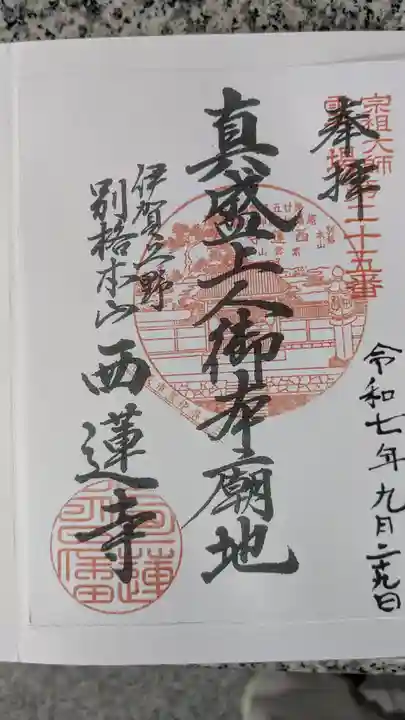 奉拝
宗祖大師
霊場第二十五番
真盛上人御本廟地
伊賀上野
別格本山 西蓮寺
令和七年九月二十九日